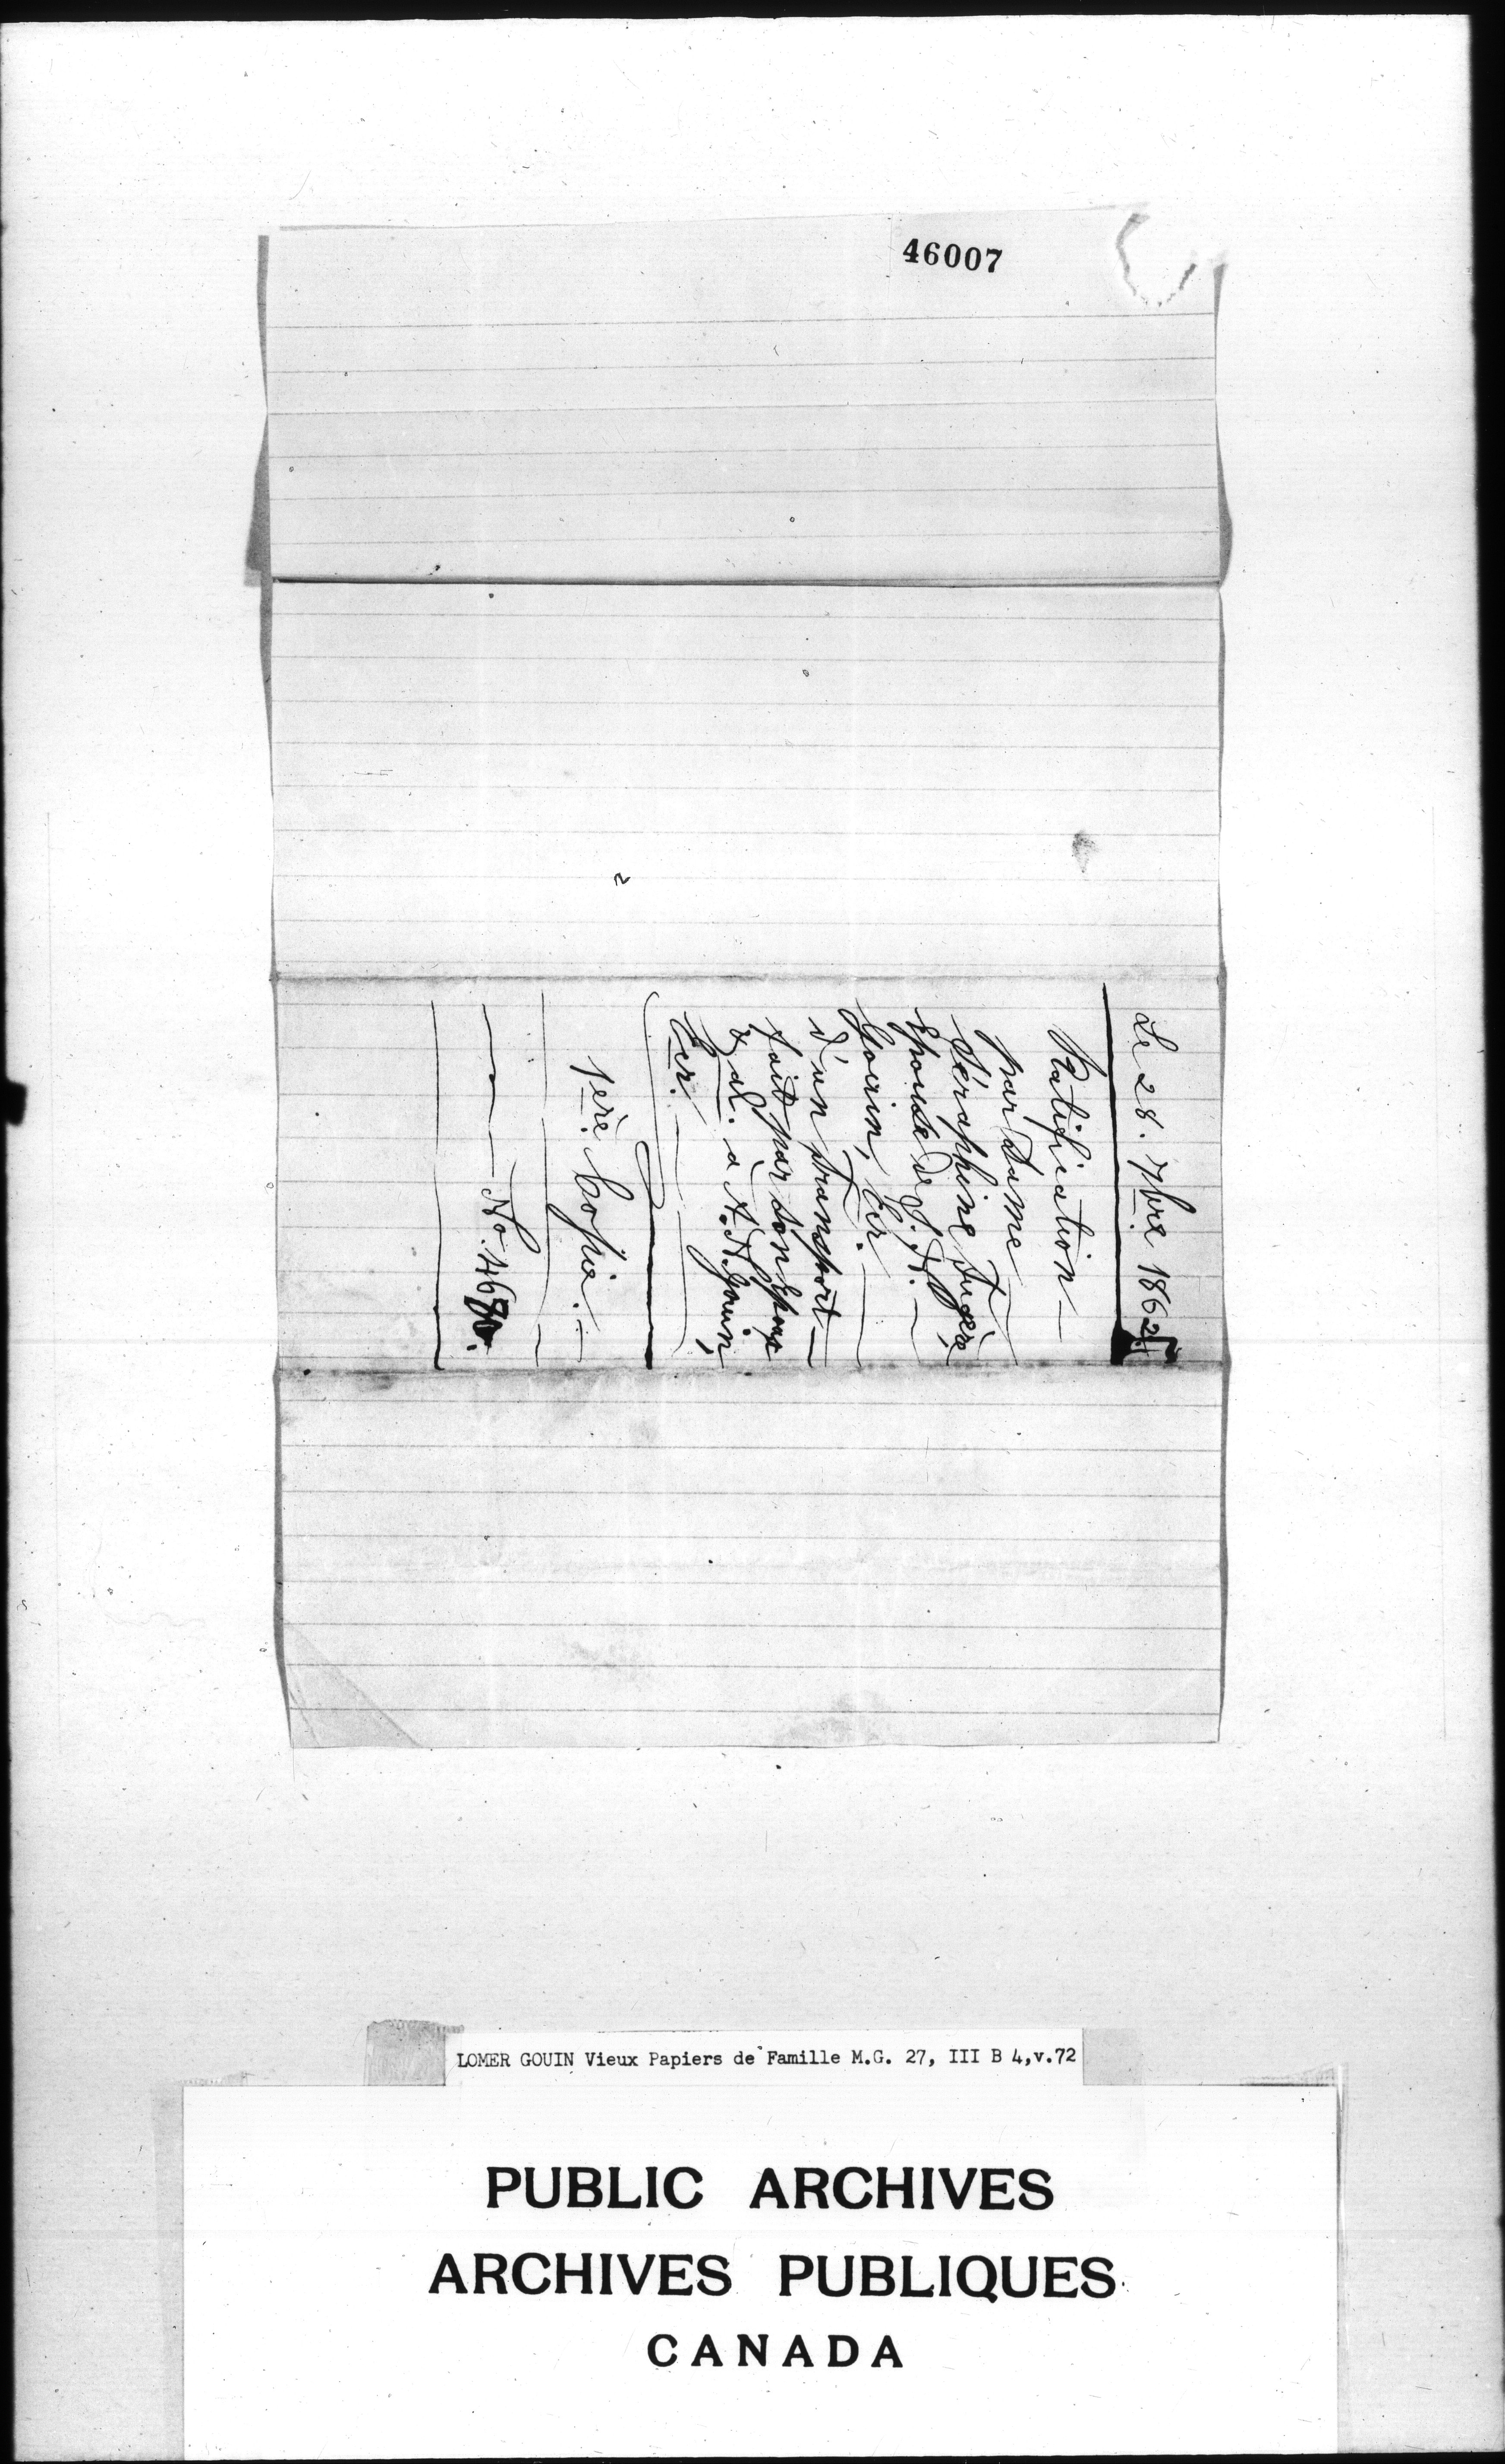 46007
Le 28. 7bre 1862
Ratification —
par Dame
Séraphine Fugère,
Epouse de J. N. —
Gouin, Ecr. —
d'un transport —
fait par son Epoux
& al. a A. N. Gouin,
Ecr. —
1ere Copie. —
No. 46
LOMER GOUIN Vieux Papiers de Famille M.G. 27, III B 4,v.72
PUBLIC ARCHIVES
ARCHIVES PUBLIQUES
CANADA